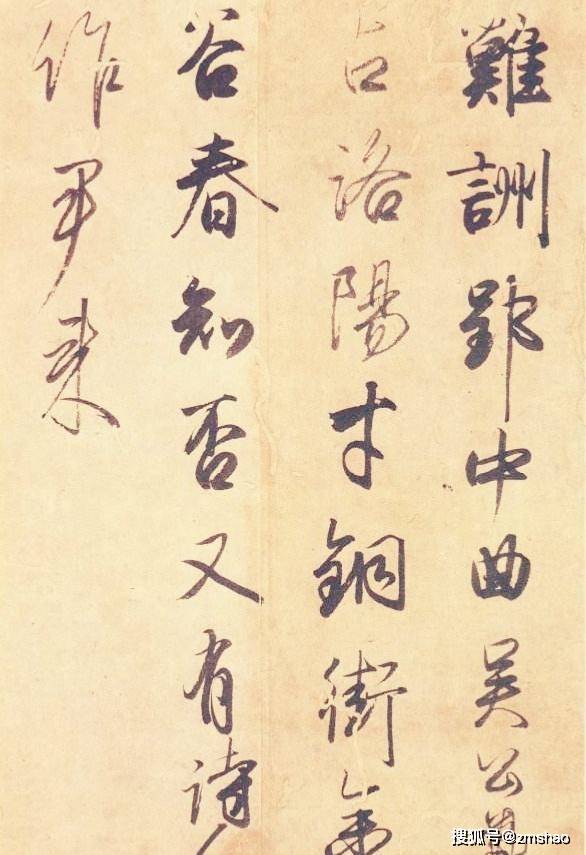 難詶郢中曲吳公薦
召洛陽才銅街金
谷春知否又有詩
作尹來
搜狐号@zmshao